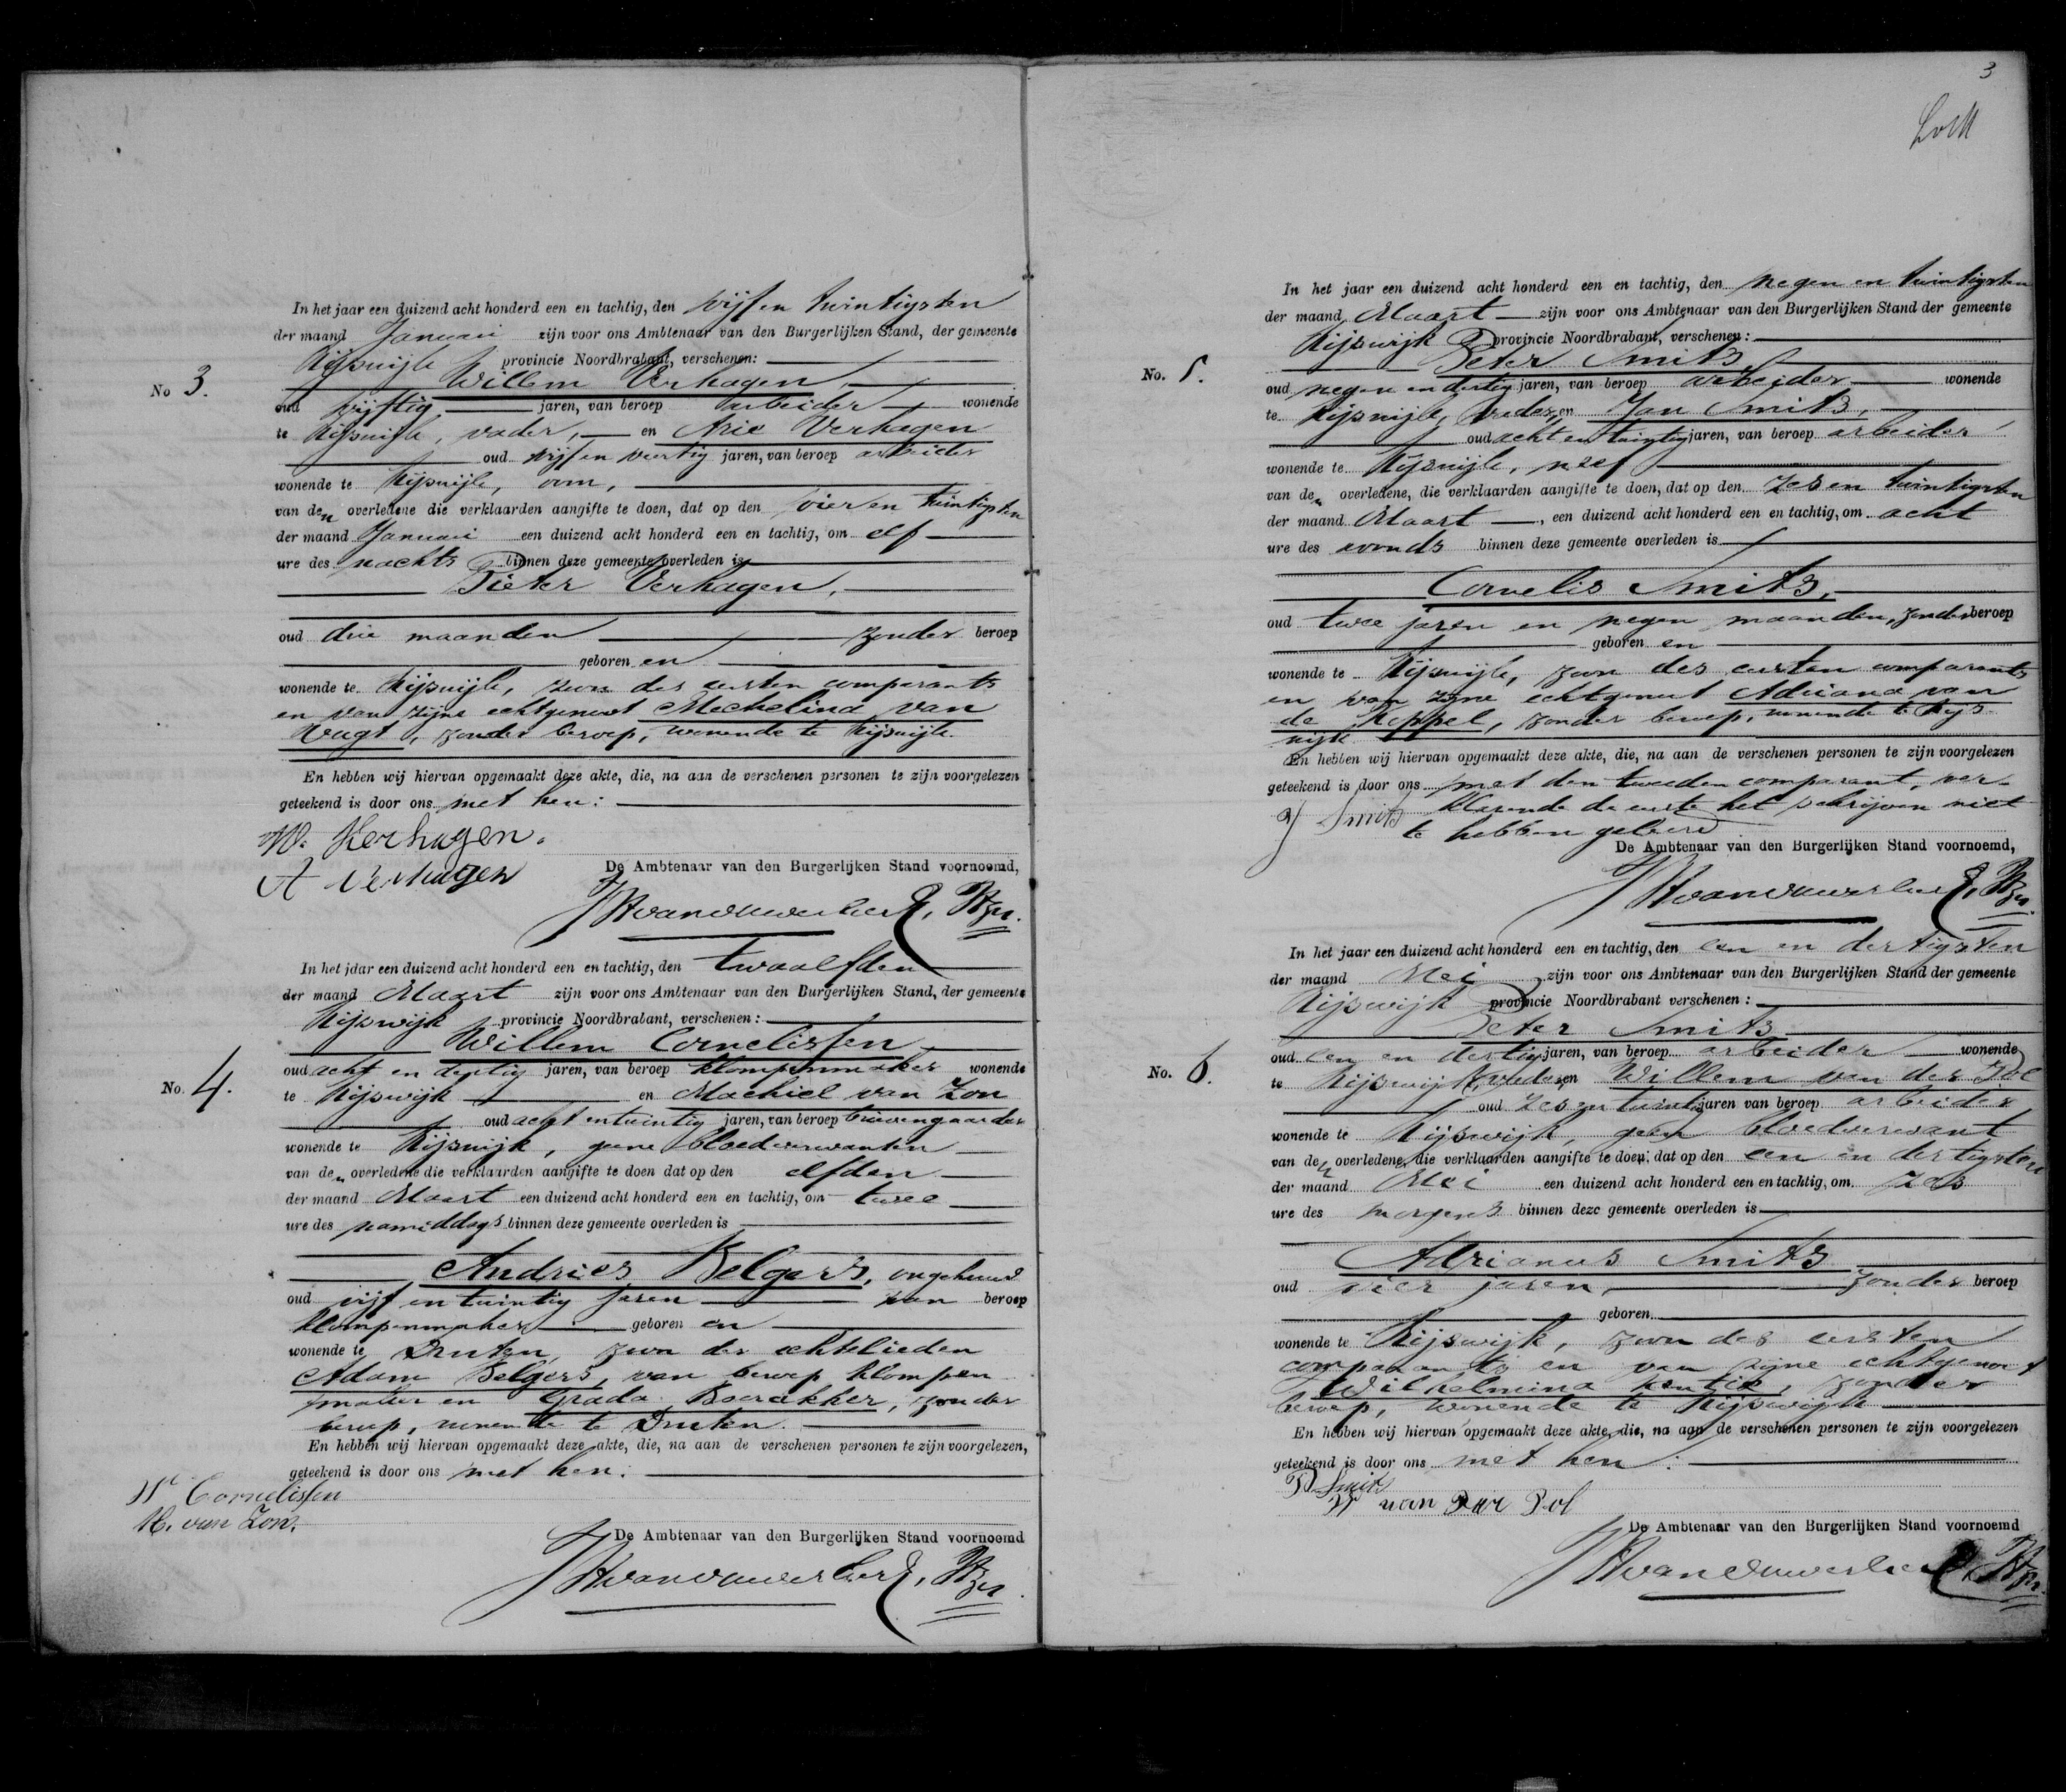 In het jaar een duizend acht honderd een en tachtig, den vijf en twintigsten
der maand Januari zijn voor ons Ambtenaar van den Burgerlijken Stand, der gemeente
Rijswijk provincie Noordbrabant, verschenen:
Willem Verhagen,
No 3.
oud vijftig jaren, van beroep arbeider wonende
te Rijswijk, vader, en Arie Verhagen
oud vijf en veertig jaren, van beroep arbeider
wonende te Rijswijk, oom,
van den overledene die verklaarden aangifte te doen, dat op den vier en twintigsten
der maand Januari een duizend acht honderd een en tachtig, om elf
ure des nachts binnen deze gemeente overleden is
Pieter Verhagen,
oud drie maanden zonder beroep
geboren en
wonende te Rijswijk, zoon des eersten comparants
en van zijne echtgenoot Mechelina van
Vugt, zonder beroep, wonende te Rijswijk.
En hebben wij hiervan opgemaakt deze akte, die, na aan de verschenen personen te zijn voorgelezen
geteekend is door ons met hen:
W. Verhagen.
A Verhagen
De Ambtenaar van den Burgerlijken Stand voornoemd,
In het jaar een duizend acht honderd een en tachtig, den twaalfden
der maand Maart zijn voor ons Ambtenaar van den Burgerlijken Stand, der gemeente
Rijswijk provincie Noordbrabant, verschenen:
Willem Cornelissen
No. 4.
oud acht en dertig jaren, van beroep klompenmaker wonende
te Rijswijk en Machiel van Zon
oud acht en twintig jaren, van beroep brievengaarder
wonende te Rijswijk, geene bloedverwanten
van den overledene die verklaarden aangifte te doen dat op den elfden
der maand Maart een duizend acht honderd een en tachtig, om twee
ure des namiddags binnen deze gemeente overleden is
Andries Belgers, ongehuwd
oud vijf en twintig jaren van beroep
klompenmaker geboren en
wonende te Druten, zoon der echtelieden
Adam Belgers, van beroep klompen
maker en Grada Boerakker, zonder
beroep, wonende te Druten.
En hebben wij hiervan opgemaakt deze akte, die, na aan de verschenen personen te zijn voorgelezen,
geteekend is door ons met hen:
W Cornelissen
M. van Zon.
De Ambtenaar van den Burgerlijken Stand voornoemd
3
In het jaar een duizend acht honderd een en tachtig, den negen en twintigsten
der maand Maart zijn voor ons Ambtenaar van den Burgerlijken Stand der gemeente
Rijswijk provincie Noordbrabant, verschenen:
Peter Smits
No. 5.
oud negen en dertig jaren, van beroep arbeider wonende
te Rijswijk, vader, en Jan Smits,
oud acht en twintig jaren, van beroep arbeider
wonende te Rijswijk, neef
van den overledene, die verklaarden aangifte te doen, dat op den zes en twintigsten
der maand Maart, een duizend acht honderd een en tachtig, om acht
ure des avonds binnen deze gemeente overleden is
Cornelis Smits,
oud twee jaren en negen maanden, zonder beroep
geboren en
wonende te Rijswijk, zoon des eersten comparants
en van zijne echtgenoot Adriana van
de Koppel, zonder beroep, wonende te Rijs
wijk
En hebben wij hiervan opgemaakt deze akte, die, na aan de verschenen personen te zijn voorgelezen
geteekend is door ons met den tweeden comparant, ver-
J Smits klarende de eerste het schrijven niet
te hebben geleerd
De Ambtenaar van den Burgerlijken Stand voornoemd,
In het jaar een duizend acht honderd een en tachtig, den een en dertigsten
der maand Mei zijn voor ons Ambtenaar van den Burgerlijken Stand der gemeente
Rijswijk provincie Noordbrabant verschenen:
Peter Smits
No. 6.
oud een en dertig jaren, van beroep arbeider wonende
te Rijswijk, vader en Willem van der Pol
oud zes en twintig jaren van beroep arbeider
wonende te Rijswijk, geen bloedverwant
van den overledene, die verklaarden aangifte te doen: dat op den een en dertigsten
der maand Mei een duizend acht honderd een en tachtig, om zes
ure des morgens binnen deze gemeente overleden is
Adrianus Smits
oud vier jaren, zonder beroep
geboren
wonende te Rijswijk, zoon des eersten
comparants en van zijne echtgenoot
Wilhelmina, zonder
beroep, wonende te Rijswijk
En hebben wij hiervan opgemaakt deze akte, die, na aan de verschenen personen te zijn voorgelezen
geteekend is door ons met hen:
P Smits
W van der Pol
De Ambtenaar van den Burgerlijken Stand voornoemd